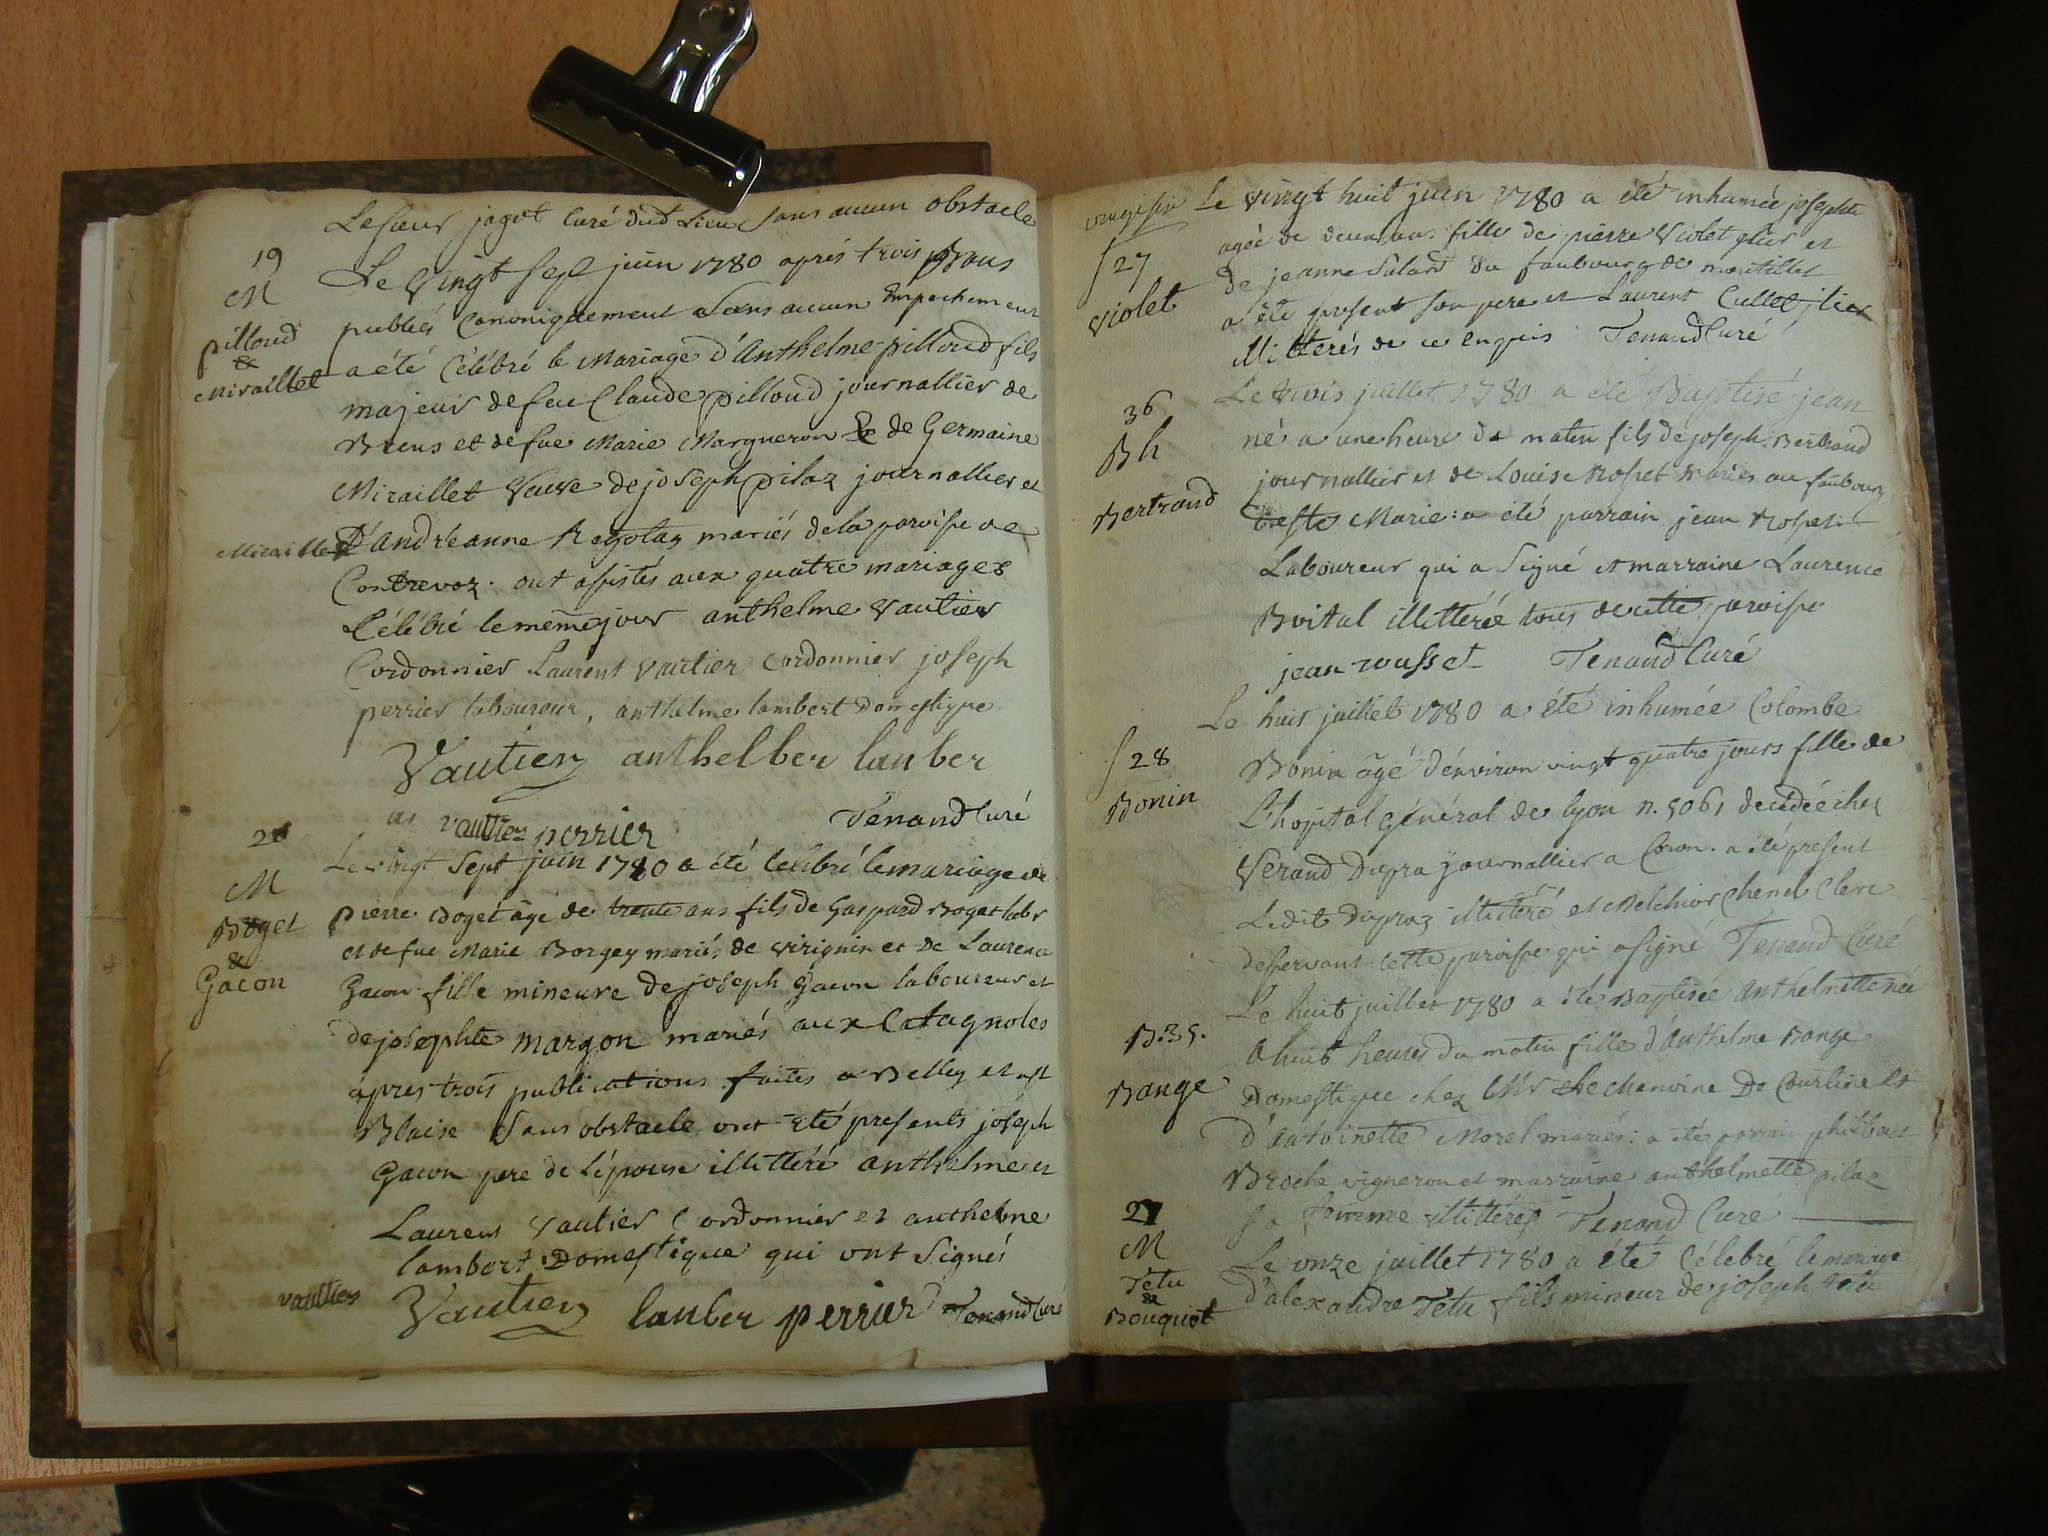 Le sieur jagot Curé dud Lieu sans aucun obstacle
19
M
pilloud
&
Miraillet
Le vingt sept juin 1780 aprés trois Bans
publiés Canoniquement Sans aucun Empechement
a été Célébré le Mariage d'Anthelme pilloud fils
majeur de feu Claude pilloud journallier de
Brens et de fue Marie Margueron & de Germaine
Miraillet Veuve de joseph pilaz journallier et
Miraillet
D'andréanne Regotaz mariés de la paroisse de
Contrevoz. ont assistés aux quatre mariages
Célébré le même jour anthelme Vautier
Cordonnier Laurent Vautier Cordonnier joseph
perrier laboureur, anthelme lambert Domestique
Vautier anthelber lanber
vautier perrier Tenand Curé
20
M
Boget
&
Gacon
Le vingt Sept juin 1780 a été Célébré le mariage de
pierre Boget âgé de trente ans fils de Gaspard Boget labr
et de fue Marie Borgey mariés de virignin et de Laurence
Gacon fille mineure de joseph Gacon laboureur et
de josephte margon mariés aux Catagnoles
après trois publications faites a Belley et a st
Blaise Sans obstacle ont été presents joséph
Gacon pere de L'épouse illittéré anthelme et
Laurent Vautier Cordonnier et anthelme
lambert Domestique qui ont Signés
vautier Vautier lanber perrier Tenand Curé
S 27
violet
Le vingt huit juin 1780 a été inhumée josephte
agée de deux ans fille de pierre Violet et
de jeanne Salard du faubourg de
a été present son pere et Laurent Cullet
illitterés de ce enquis Tenand Curé
36
Bh
Bertrand
Le trois juillet 1780 a été Baptisé jean
né a une heure du matin fils de joseph Bertrand
journallier et de Louise Rosset mariés au faubourg
Marie: a été parrain jean Rosset
Laboureur qui a Signé et marraine Laurence
Boital illittérée tous de cette paroisse
jean rousset Tenand Curé
S 28
Bonin
Le huit juillet 1780 a été inhumée Colombe
Bonin âgé d'environ vingt quatre jours fille de
L'hopital général de lyon n. 5061 decedée chez
Verand Dupra journallier a Coron. a été present
Ledit Dupraz illittéré et Melchior Chenel Clerc
desservant cette paroisse qui a signé Tenand Curé
B. 35.
Bange
Le huit juillet 1780 a été Baptisée Anthelmette née
a huit heures du matin fille d'Anthelme Bange
Domestique chez Mr Le chanoine De
d'antoinette Morel mariés: a été parrain philbert
Broche vigneron et marraine anthelmette pilaz
sa femme illittérés Tenand Curé
21
M
Tétu
&
Bouquet
Le onze juillet 1780 a été Célébré le mariage
d'alexandre Tétu fils mineur de joseph Tétu